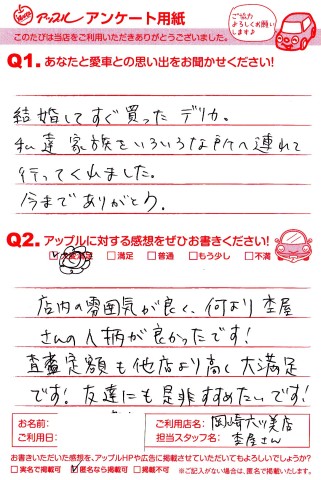 アップル アンケート用紙
ご協力
よろしくお願い
します♪
このたびは当店をご利用いただきありがとうございました。
Q1. あなたと愛車との思い出をお聞かせください!
結婚してすぐ買ったデリカ。
私達家族をいろいろな所へ連れて
行ってくれました。
今までありがとう。
Q2. アップルに対する感想をぜひお書きください!
大変満足 □満足 □普通 □もう少し □不満
店内の雰囲気が良く、何より杢屋
さんの人柄が良かったです!
査定額も他店より高く大満足
です。友達にも是非すすめたいです!
お名前: ご利用店名: 岡崎大樹寺店
ご利用日: 担当スタッフ名: 杢屋さん
お書きいただいた感想を、アップルHPや広告に掲載させていただいてもよろしいでしょうか?
□実名で掲載可 ☑匿名なら掲載可 □掲載不可 ※ご記入がない場合は、匿名で掲載いたします。